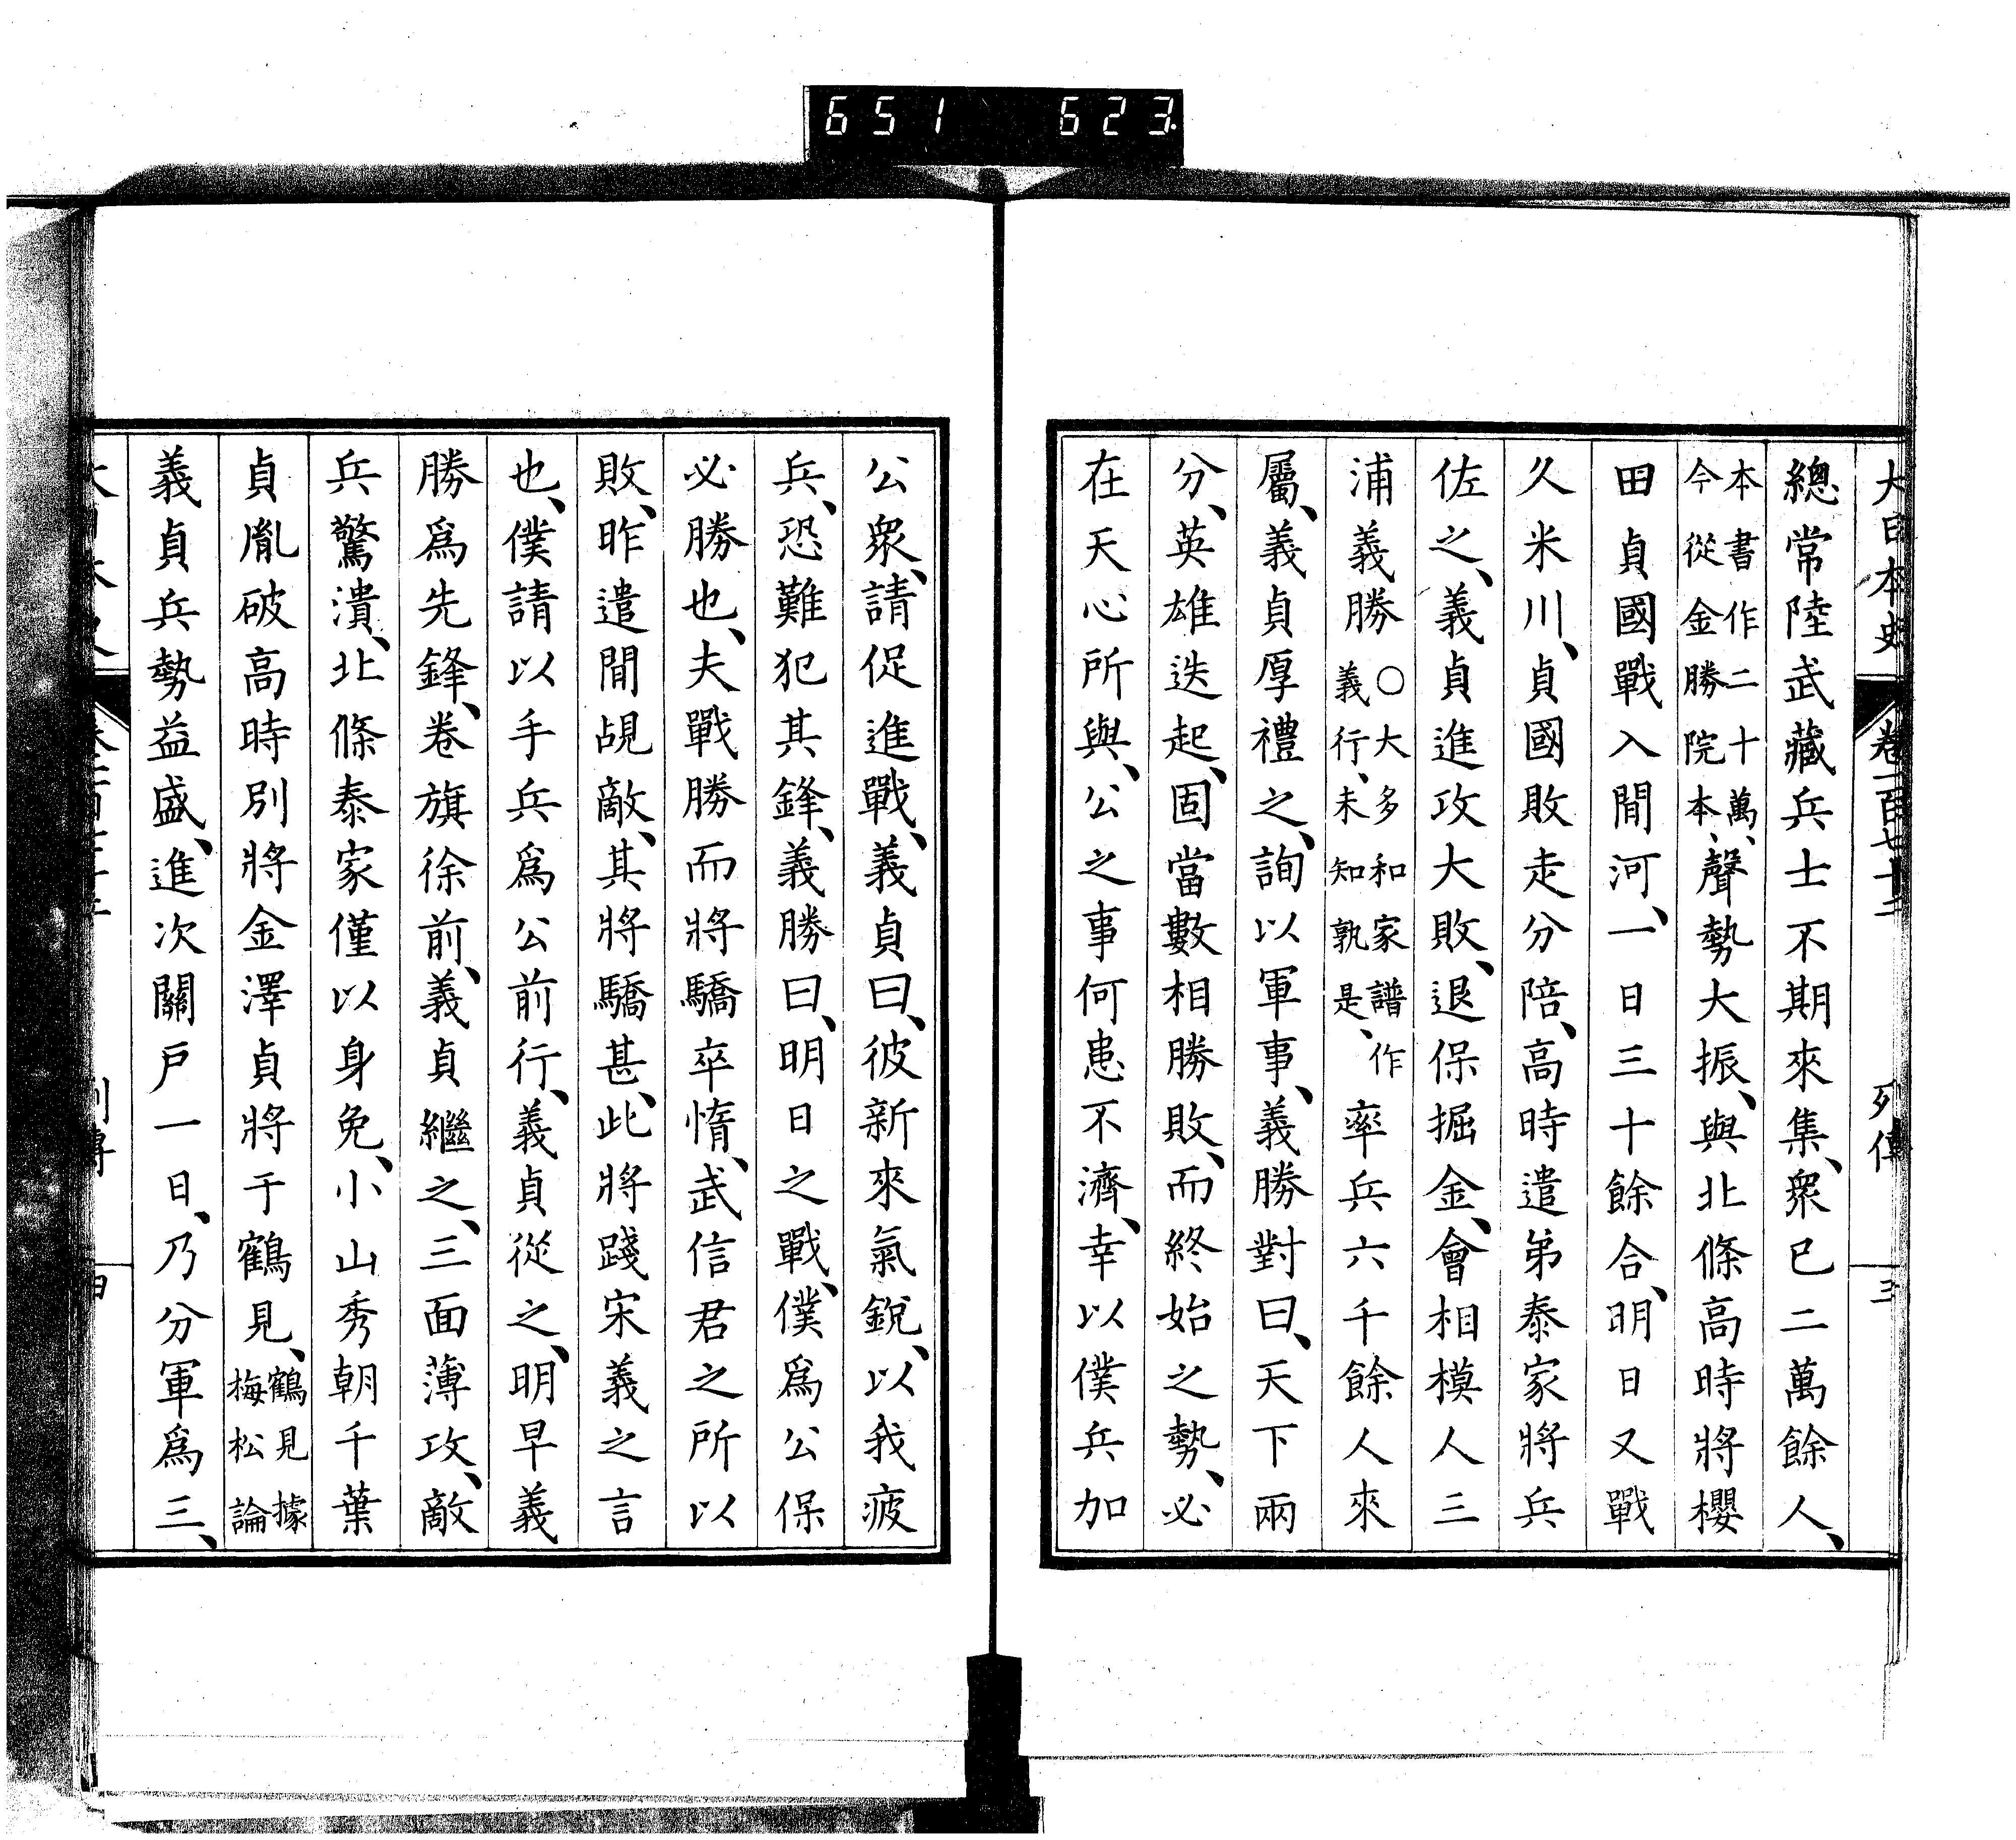 651 623
大日本史 卷一百七十二 列傳 三
總常陸武藏兵士不期來集、衆已二萬餘人、
本書作二十萬、今從金勝院本、聲勢大振、與北條高時將櫻
田貞國戰入間河、一日三十餘合、明日又戰
久米川、貞國敗走分陪、高時遣弟泰家將兵
佐之、義貞進攻大敗、退保掘金、會相模人三
浦義勝○大多和家譜作義行、未知孰是、率兵六千餘人來
屬、義貞厚禮之、詢以軍事、義勝對曰、天下兩
分、英雄迭起、固當數相勝敗、而終始之勢、必
在天心所與、公之事何患不濟、幸以僕兵加
公衆、請促進戰、義貞曰、彼新來氣銳、以我疲
兵、恐難犯其鋒、義勝曰、明日之戰、僕爲公保
必勝也、夫戰勝而將驕卒惰、武信君之所以
敗、昨遣間覘敵、其將驕甚、此將踐宋義之言
也、僕請以手兵爲公前行、義貞從之、明早義
勝爲先鋒、卷旗徐前、義貞繼之、三面薄攻、敵
兵驚潰、北條泰家僅以身免、小山秀朝千葉
貞胤破高時別將金澤貞將于鶴見、鶴見據梅松論
義貞兵勢益盛、進次關戸一日、乃分軍爲三、